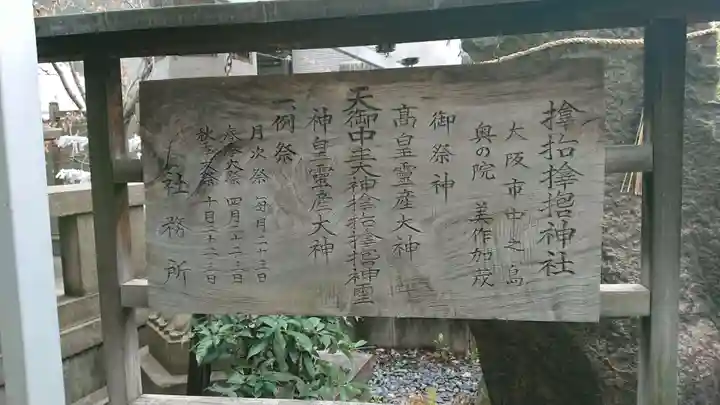 撿挕撿挕神社
大阪市中之島
奥の院 美作加茂
一、御祭神
高皇霊産大神
天御中主大神撿挕撿挕神聖
神皇霊産大神
一、例祭
月次祭 毎月二十三日
春季大祭 四月二十三日
秋季大祭 十月二十三日
社務所